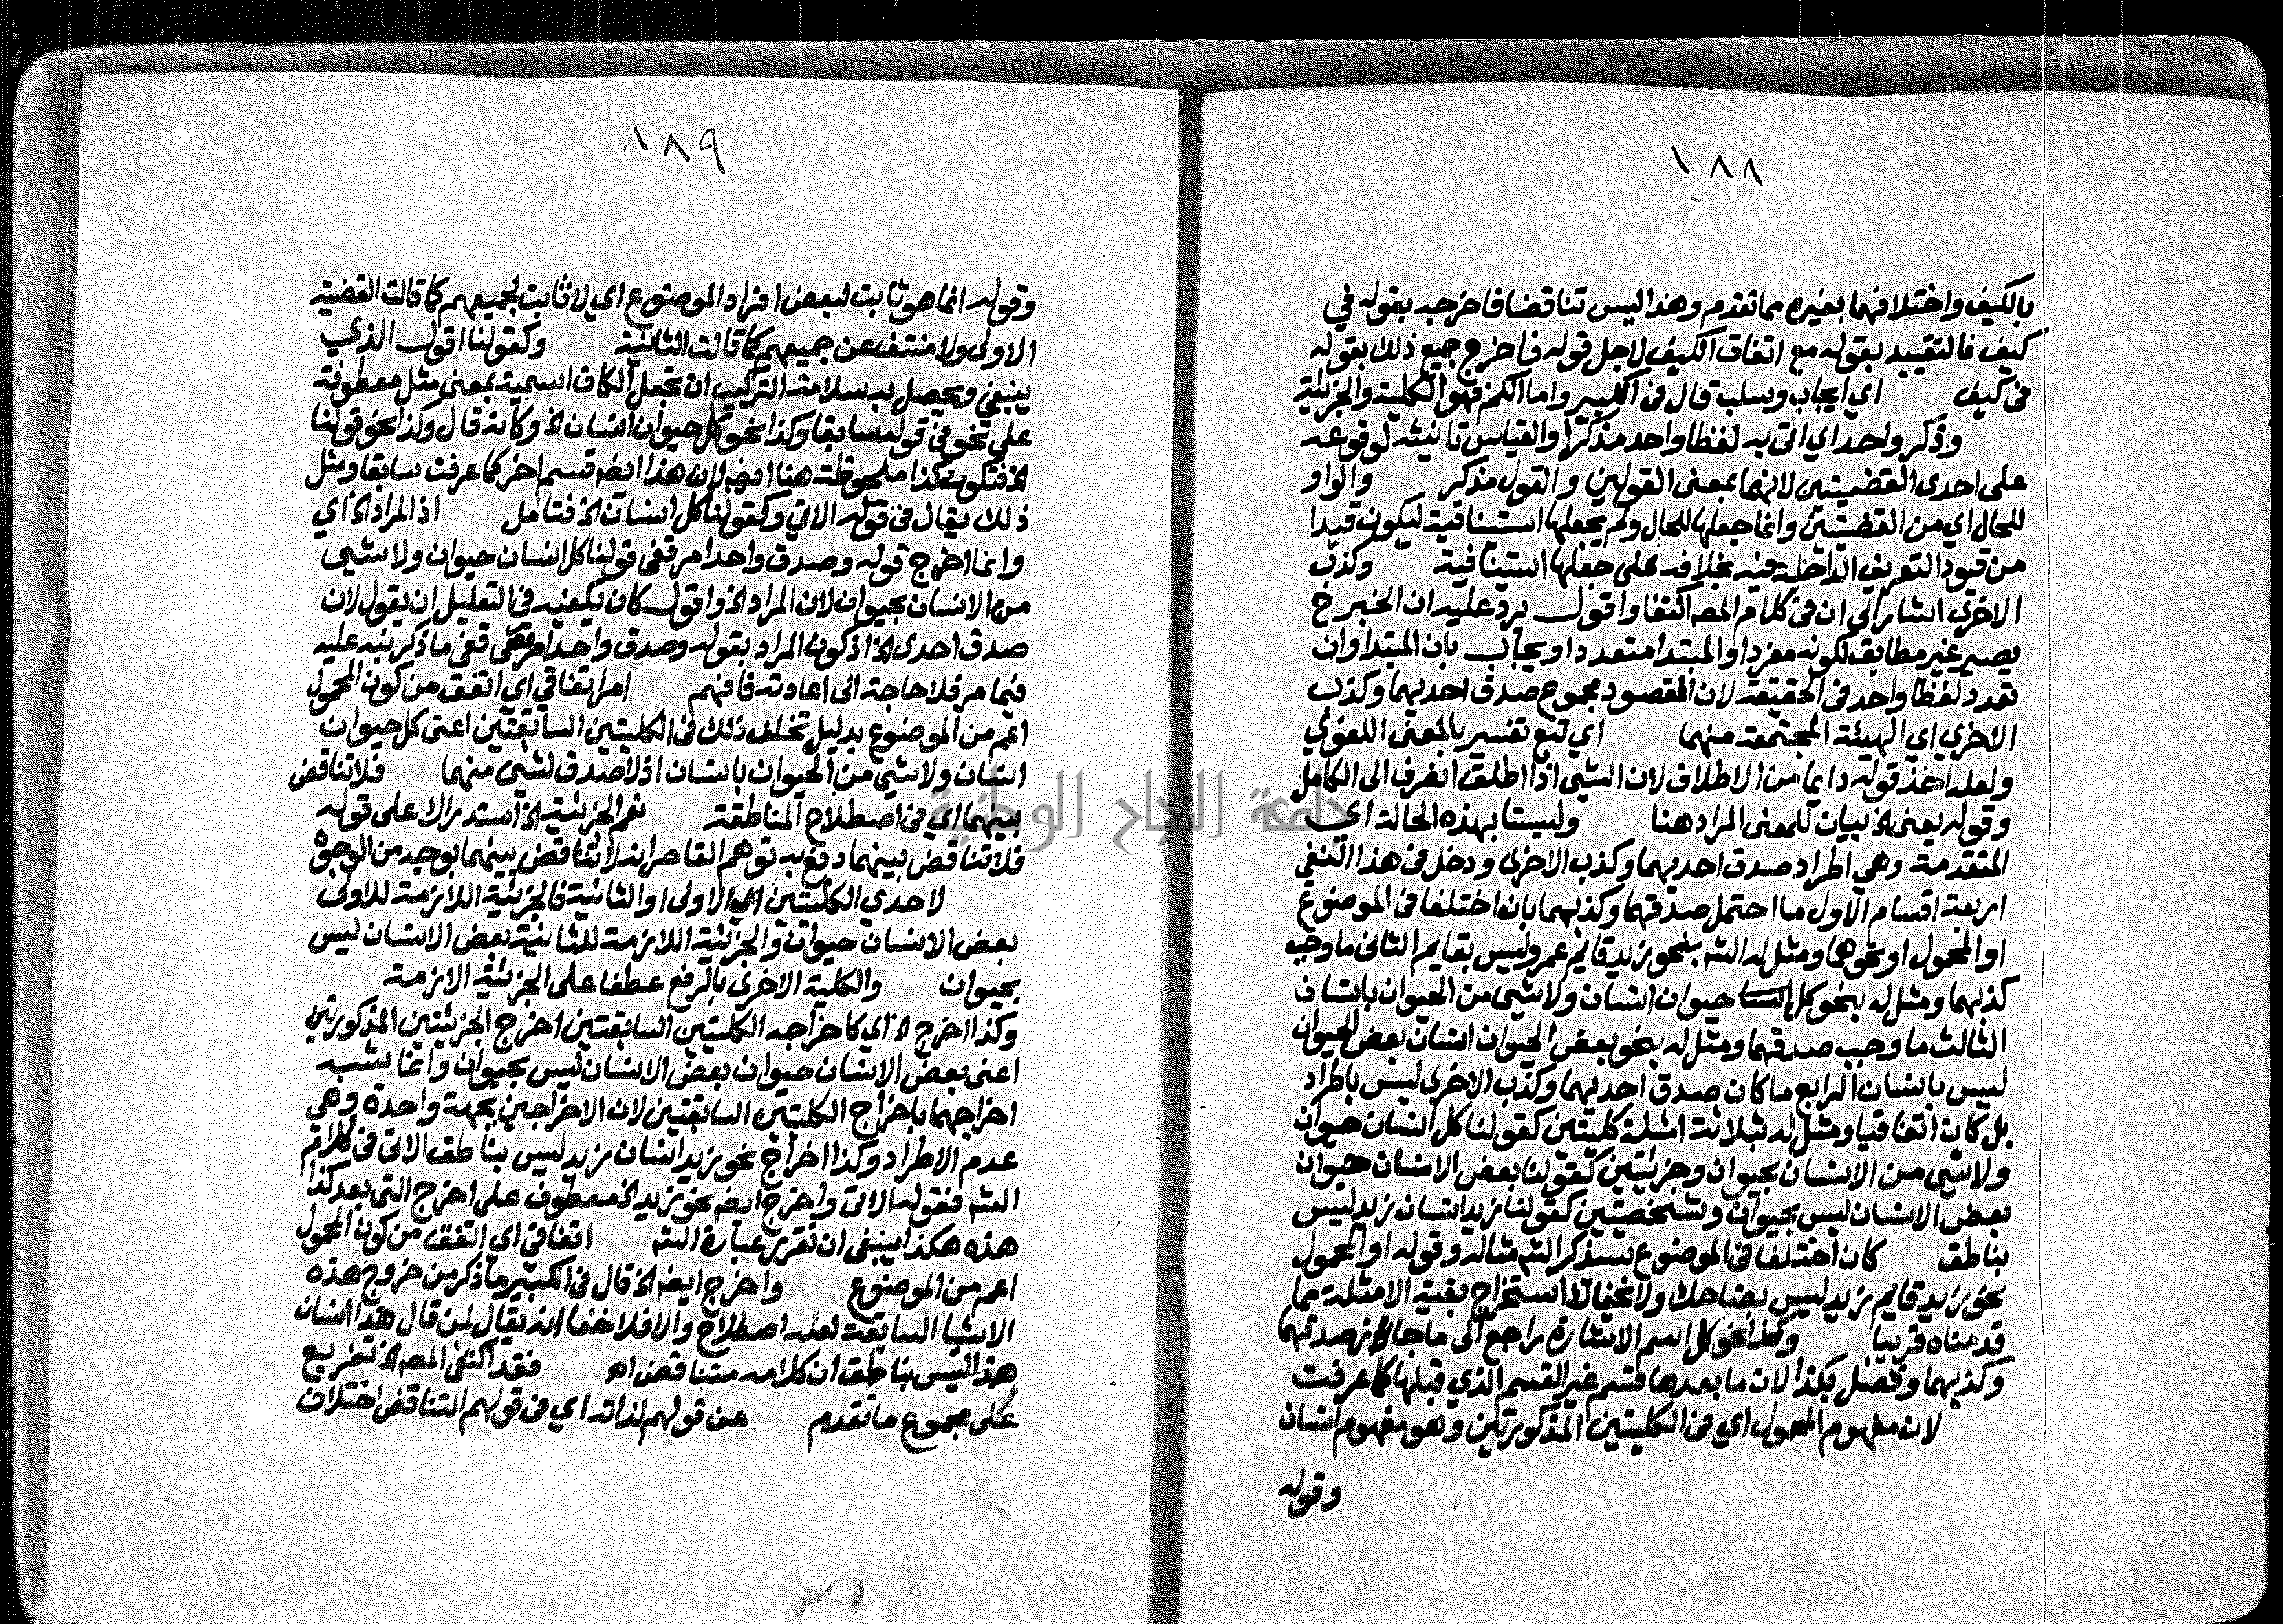 ١٨٨
بالكيف واختلافهما بغيره مما تقدم وهذا ليس تناقضا فاخرجه بقوله في
كيف فالتقييد بقوله مع اتفاق الكيف لاجل قوله فاخرج جميع ذلك بقوله
في كيف اي ايجاب وسلب قال في الكبير واما الكم فهو الكلية والجزئية
وذكر واحد اي اتى به لفظا واحد مذكرا والقياس تانيثه لوقوعه
على احدى القضيتين لانهما بمعنى القولين والقول مذكر والواو
للحال اي من القضيتين وانما جعلها للحال ولم يجعلها استينافية ليكون قيدا
من قيود التعريف الداخلة فيه بخلافه على جعلها استينافية وكذب
الاخرى اشار الى ان في كلام المصه اكتفا واقول يرد عليه ان الخبر ح
يصير غير مطابق لكونه مفردا والمبتدا متعددا ويجاب بان المبتدا وان
تعدد لفظا واحد في الحقيقة لان المقصود مجموع صدق احديهما وكذب
الاخرى اي الهيئة المجتمعة منهما اي تبع تفسير بالمعنى اللغوي
ولعله اخذ قوله دايما من الاطلاق لان الشي اذا اطلق انصرف الى الكامل
وقوله يعنى الخ بيان للمعنى المراد هنا وليستا بهذه الحالة اي
المتقدمة وهي اطراد صدق احديهما وكذب الاخرى ودخل في هذا النفي
اربعة اقسام الاول ما احتمل صدقهما وكذبهما بان اختلفا في الموضوع
او المحمول او نحوهما ومثل له الشه بنحو زيد قايم عمرو ليس بقايم الثاني ما وجب
كذبهما ومثل له بنحو كل حيوان انسان ولا شي من الحيوان بانسان
الثالث ما وجب صدقهما ومثل له بنحو بعض الحيوان انسان بعض الحيوان
ليس بانسان الرابع ما كان صدق احديهما وكذب الاخرى ليس باطراد
بل كان اتفاقيا ومثل له بثلاثة امثلة كليتين كقولنا كل انسان حيوان
ولا شي من الانسان بحيوان وجزئيتين كقولنا بعض الانسان حيوان
بعض الانسان ليس بحيوان وشخصيتين كقولنا زيد انسان زيد ليس
بناطق كان اختلفا في الموضوع سيذكر الشه مثاله وقوله او المحمول
نحو زيد قايم زيد ليس بضاحك ولا يخفاك استخراج بقية الامثلة مما
قدمناه قريبا وكذا نحو كل اسم الاشارة راجع الى ما جاز صدقهما
وكذبهما وفصل بكذا لان ما بعدها قسم غير القسم الذي قبلها كما عرفت
لان مفهوم المحمول اي في الكليتين المذكورتين وهو مفهوم انسان
وقوله
١٨٩
وقوله انما هو ثابت لبعض افراد الموضوع اي لا ثابت لجميعهم كما قالت القضية
الاولى ولا منتف عن جميعهم كما قالت الثانية وكقولنا اقول الذي
ينبغي ويحصل به سلامة التركيب ان تجعل الكاف اسمية بمعنى مثل معطوفة
على نحو في قوله سابقا وكذا نحو كل حيوان انسان الخ وكانه قال وكذا نحو قولنا
الخ فتكون كذا ملحوظة هنا ايضه لان هذا ايضه قسم اخر كما عرفت سابقا ومثل
ذلك يقال في قوله الاتي وكقولنا كل انسان الخ فتامل اذ المراد الخ اي
وانما اخرج قوله وصدق واحد امر قفى قولنا كل انسان حيوان ولا شي
من الانسان بحيوان لان المراد الخ واقول كان يكفيه في التعليل ان يقول لان
صدق احدى الخ اذ كون المراد بقوله وصدق واحد امر قفى ما ذكر نبه عليه
فيما مر فلا حاجة الى اعادته فافهم امر اتفاقي اي اتفق من كون المحمول
اعم من الموضوع بدليل تخلف ذلك في الكليتين السابقتين اعنى كل حيوان
انسان ولا شي من الحيوان بانسان اذ لا صدق لشي منهما فلا تناقض
بينهما اي في اصطلاح المناطقة نعم الجزئية الخ استدراك على قوله
فلا تناقض بينهما دفع به توهم القاصر انه لا تناقض بينهما بوجه من الوجوه
لاحدي الكليتين اي الاولى او الثانية فالجزئية اللازمة للاولى
بعض الانسان حيوان والجزئية اللازمة للثانية بعض الانسان ليس
بحيوان والكلية الاخرى بالرفع عطفا على الجزئية الازمة
وكذا اخرج الخ اي كاخراجه الكليتين السابقتين اخرج الجزئيتين المذكورتين
اعنى بعض الانسان حيوان بعض الانسان ليس بحيوان وانما شبه
اخراجهما باخراج الكليتين السابقتين لان الاخراجين بجهة واحدة وهي
عدم الاطراد وكذا اخراج نحو زيد انسان زيد ليس بناطق الاتي في كلام
الشه فقوله الاتي واخرج ايضه نحو زيد الخ معطوف على اخرج التي بعد كذا
هذه هكذا ينبغي ان تقرر عبارة الشه اتفاقي اي اتفق من كون المحمول
اعم من الموضوع واخرج ايضه الخ قال في الكبير ما ذكر من خروج هذه
الاشيا السابقة لعله اصطلاح والا فلا خفا انه يقال لمن قال هذا انسان
هذا ليس بناطق ان كلامه متناقض اهـ فقد اكتفى المصه الخ تفريع
على مجموع ما تقدم عن قولهم لذاته اي في قولهم التناقض اختلاف